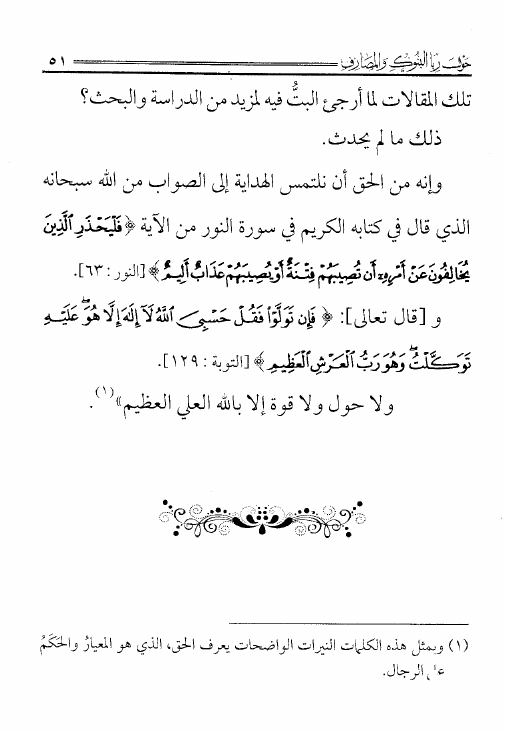 حول ربا البنوك والمصارف ٥١
تلك المقالات لما أرجئ البتُّ فيه لمزيد من الدراسة والبحث؟
ذلك ما لم يحدث.
وإنه من الحق أن نلتمس الهداية إلى الصواب من الله سبحانه
الذي قال في كتابه الكريم في سورة النور من الآية ﴿ فَلْيَحْذَرِ الَّذِينَ
يُخَالِفُونَ عَنْ أَمْرِهِۦٓ أَن تُصِيبَهُمْ فِتْنَةٌ أَوْ يُصِيبَهُمْ عَذَابٌ أَلِيمٌ ﴾ [النور: ٦٣].
و [قال تعالى]: ﴿ فَإِن تَوَلَّوْا۟ فَقُلْ حَسْبِىَ ٱللَّهُ لَآ إِلَٰهَ إِلَّا هُوَ ۖ عَلَيْهِ
تَوَكَّلْتُ ۖ وَهُوَ رَبُّ ٱلْعَرْشِ ٱلْعَظِيمِ ﴾ [التوبة: ١٢٩].
ولا حول ولا قوة إلا بالله العلي العظيم»(١).
(١) وبمثل هذه الكلمات النيرات الواضحات يعرف الحق، الذي هو المعيارُ والحَكَمُ
على الرجال.